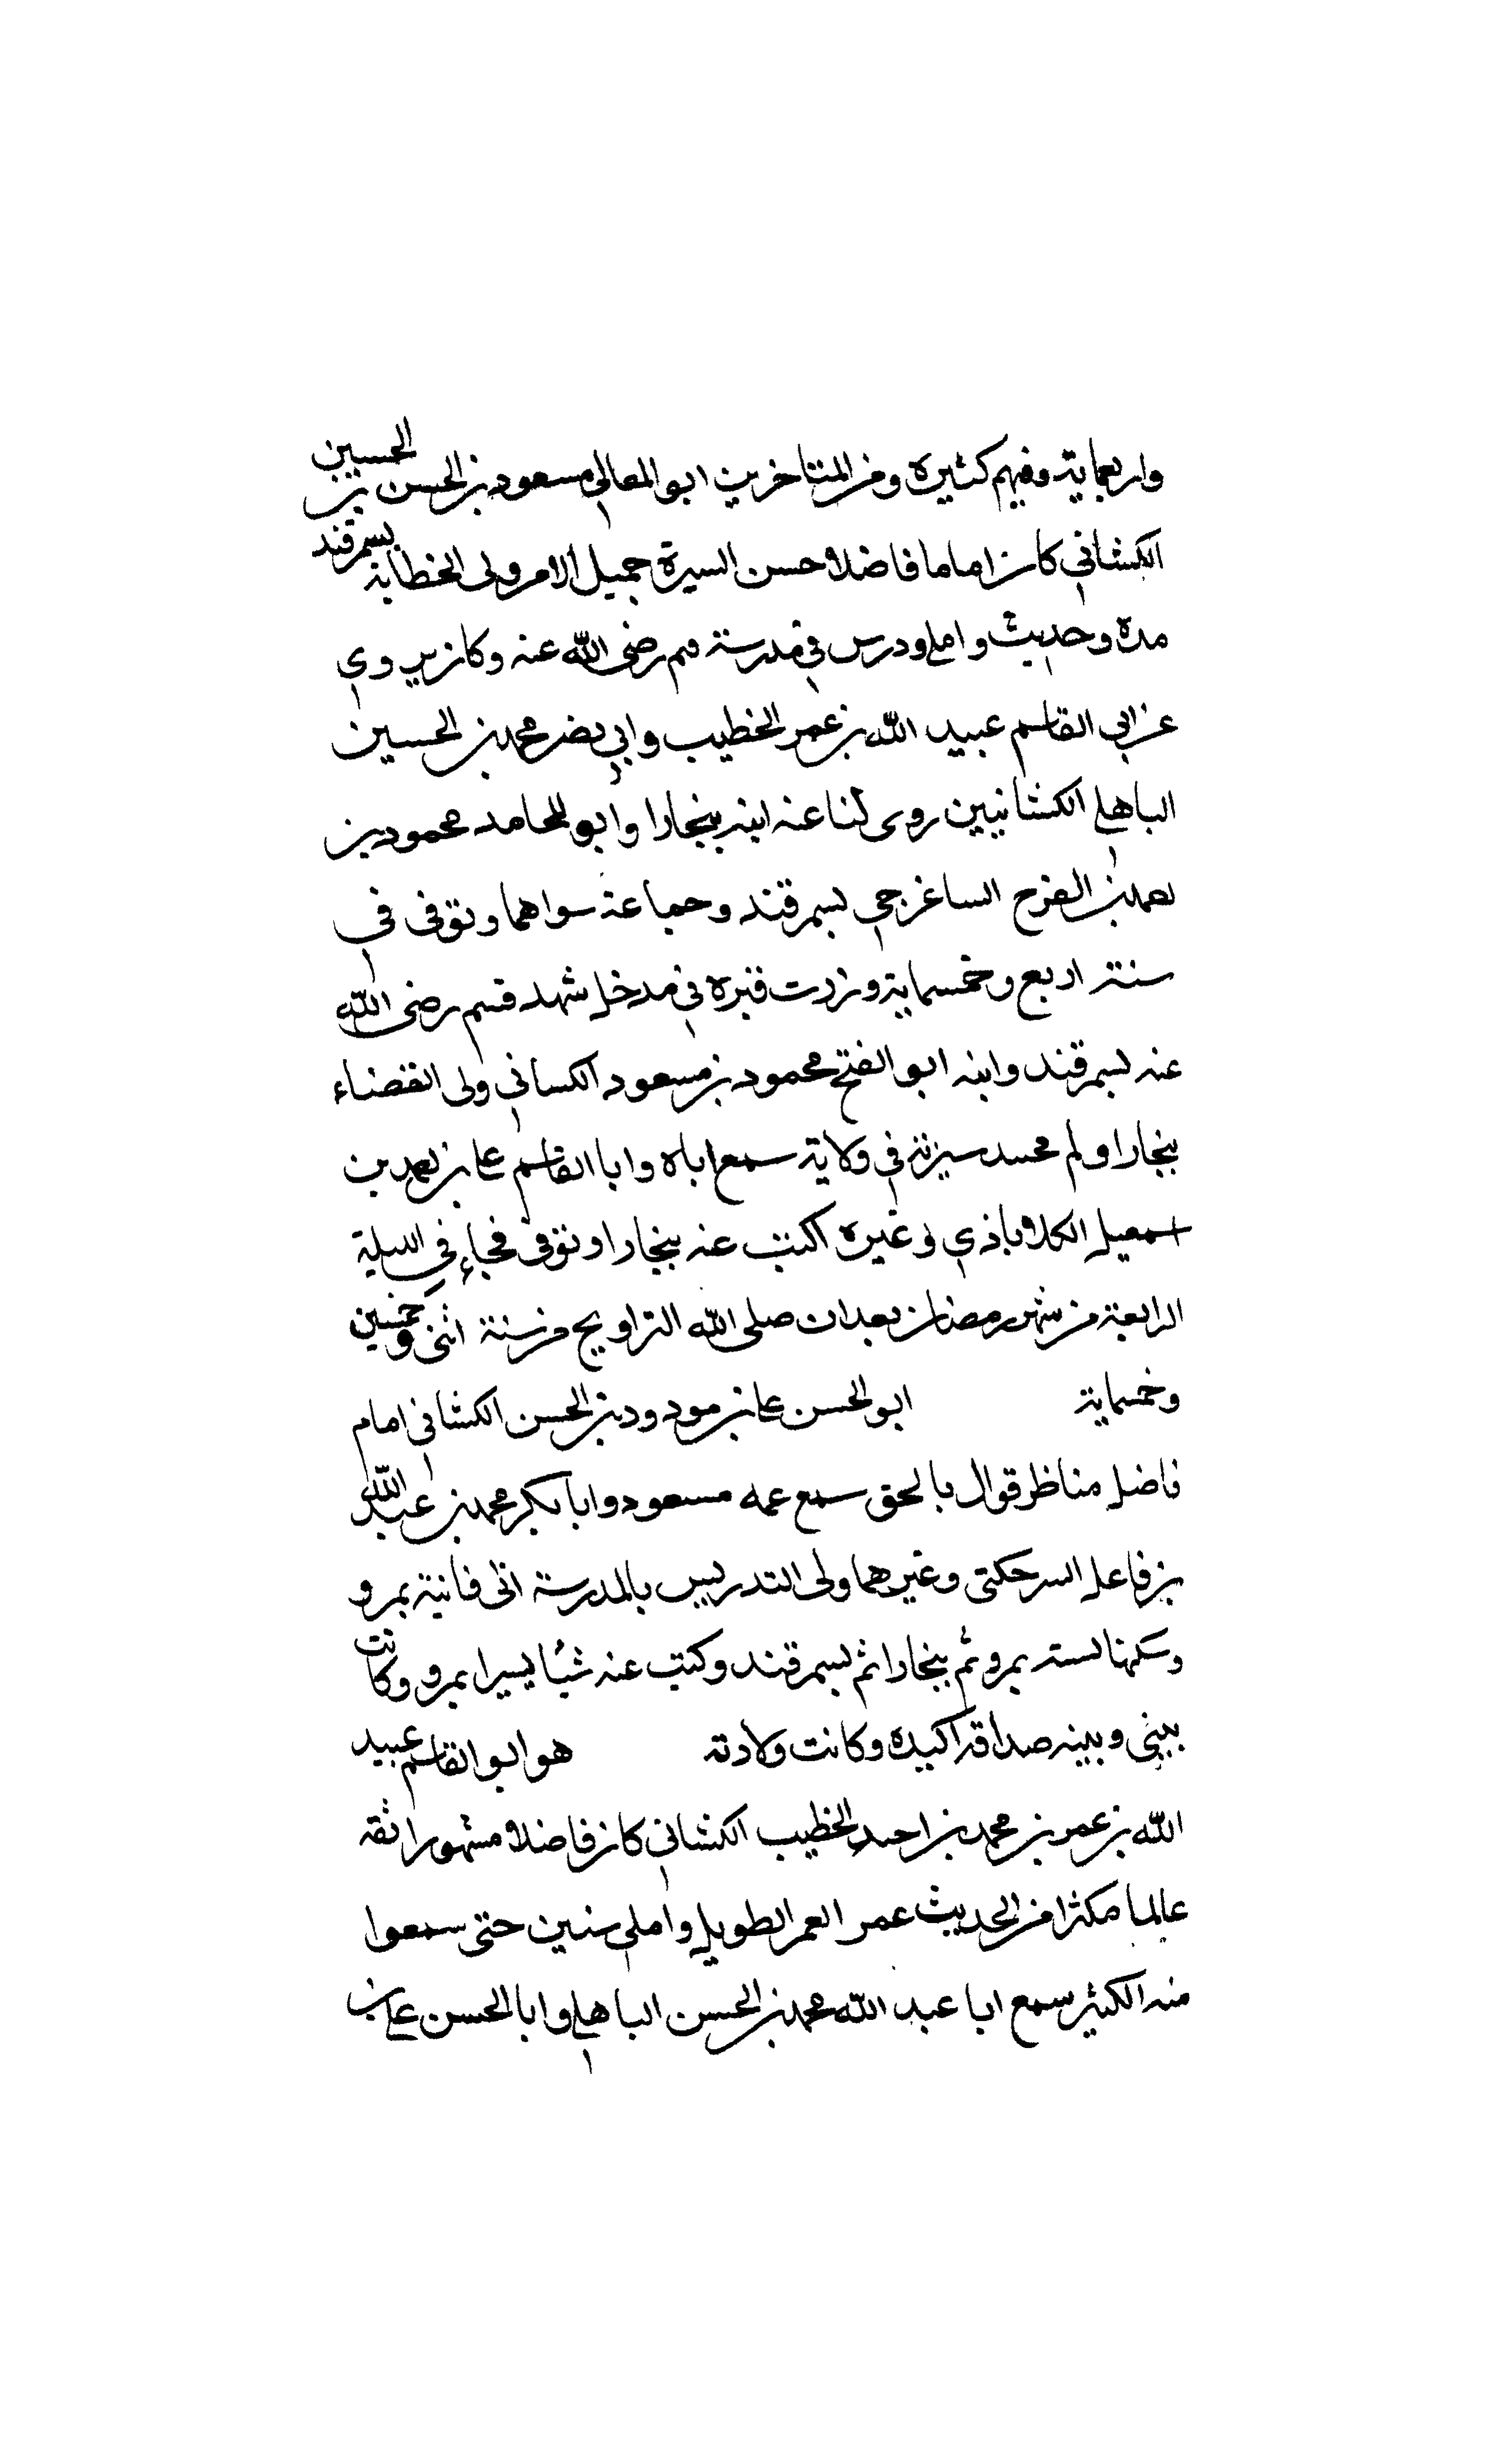 واربعماية وفيهم كثيره ومن المتاخرين ابو المعالي مسعود بن الحسن بن الحسين
الكشاني كان اماما فاضلا حسن السيرة جميل الامر ولى الخطابة بسمرقند
مدة وحديث واملى ودرس في مدرسة قثم رضى الله عنه وكان يروي
عن ابي القاسم عبيد الله بن عمر الخطيب وابي نصر محمد بن الحسين
الباهلي الكشانيين روى لنا عنه ابنه ببخارا وابو المحامد محمود بن
احمد بن الفرح الساغرجي بسمرقند وجماعة سواهما وتوفى في
سنة اربع وخمسماية وزرت قبره في مدخل شهد قسم رضى الله
عنه بسمرقند وابنه ابو الفتح محمود بن مسعود الكسانى ولى القضاء
ببخارا ولم محمد سيرته في ولاية سمع اباه وابا القاسم على بن احمد بن
اسمعيل الكلاباذي وغيره اكتب عنه ببخارا وتوفى فجاء في الليلة
الرابعة من شهر رمضان بعد ان صلى الله التراويح من سنة اثنى وخمسين
وخمسماية ابو الحسن على بن مودود بن الحسن الكشانى امام
فاضل مناظر قوال بالحق سمع عمه مسعود وابا بكر محمد بن عبد الله
بن فاعل السرحكتى وغيرهما ولى التدريس بالمدرسة الخاقانية بمرو
وسكنها بسته بمرو ثم ببخارا ثم بسمرقند وكتب عنه شيا يسيرا بمرو وكانت
بيني وبينه صداقة اكيده وكانت ولادته هو ابو القاسم عبيد
الله بن عمر بن محمد بن احمد الخطيب الكشانى كان فاضلا مشهورا ثقه
عالما مكثرا من الحديث عمر العمر الطويل واملى سنين حتى سمعوا
منه الكثير سمع ابا عبد الله محمد بن الحسن الباهلي وابا الحسن على بن